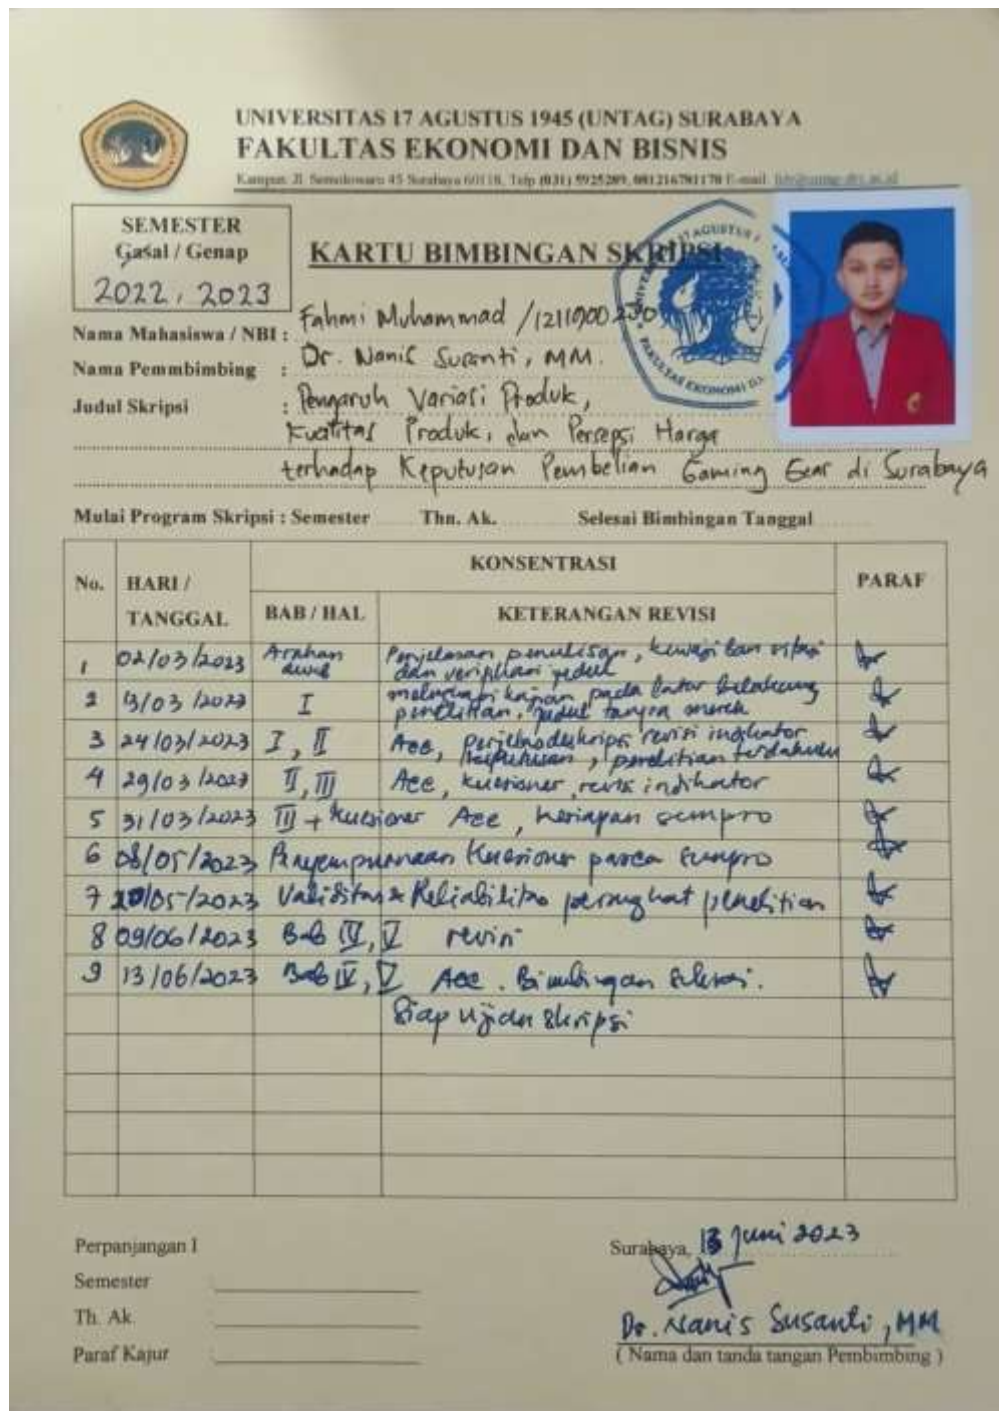 UNIVERSITAS 17 AGUSTUS 1945 (UNTAG) SURABAYA
FAKULTAS EKONOMI DAN BISNIS
Kampus: Jl. Semolowaru 45 Surabaya 60118, Telp (031) 5925289, 081216781178 E-mail
SEMESTER
Gasal / Genap
2022, 2023
KARTU BIMBINGAN SKRIPSI
Nama Mahasiswa / NBI : Fahmi Muhammad / 1211900230
Nama Pemmbimbing : Dr. Nanis Susanti, MM.
Judul Skripsi : Pengaruh Variasi Produk,
Kualitas Produk, dan Persepsi Harga
terhadap Keputusan Pembelian Gaming Gear di Surabaya
Mulai Program Skripsi : Semester Thn. Ak. Selesai Bimbingan Tanggal
No. HARI / TANGGAL KONSENTRASI PARAF
BAB / HAL KETERANGAN REVISI
1 02/03/2023 Arahan awal Penjelasan penulisan, kewajiban
dan verifikasi judul
2 13/03/2023 I melengkapi kajian pada latar belakang
penelitian, judul tanpa merek
3 24/03/2023 I, II Acc, revisi indikator
keputusan, penelitian terdahulu
4 29/03/2023 II, III Acc, kuesioner, revisi indikator
5 31/03/2023 III + kuesioner Acc, kesiapan sempro
6 08/05/2023 Penyempurnaan Kuesioner pasca sempro
7 20/05/2023 Validitas & Reliabilitas perangkat penelitian
8 09/06/2023 Bab IV, V revisi
9 13/06/2023 Bab IV, V Acc. Bimbingan selesai.
Siap ujian skripsi
Perpanjangan I
Semester
Th. Ak.
Paraf Kajur
Surabaya, 13 Juni 2023
Dr. Nanis Susanti, MM
( Nama dan tanda tangan Pembimbing )